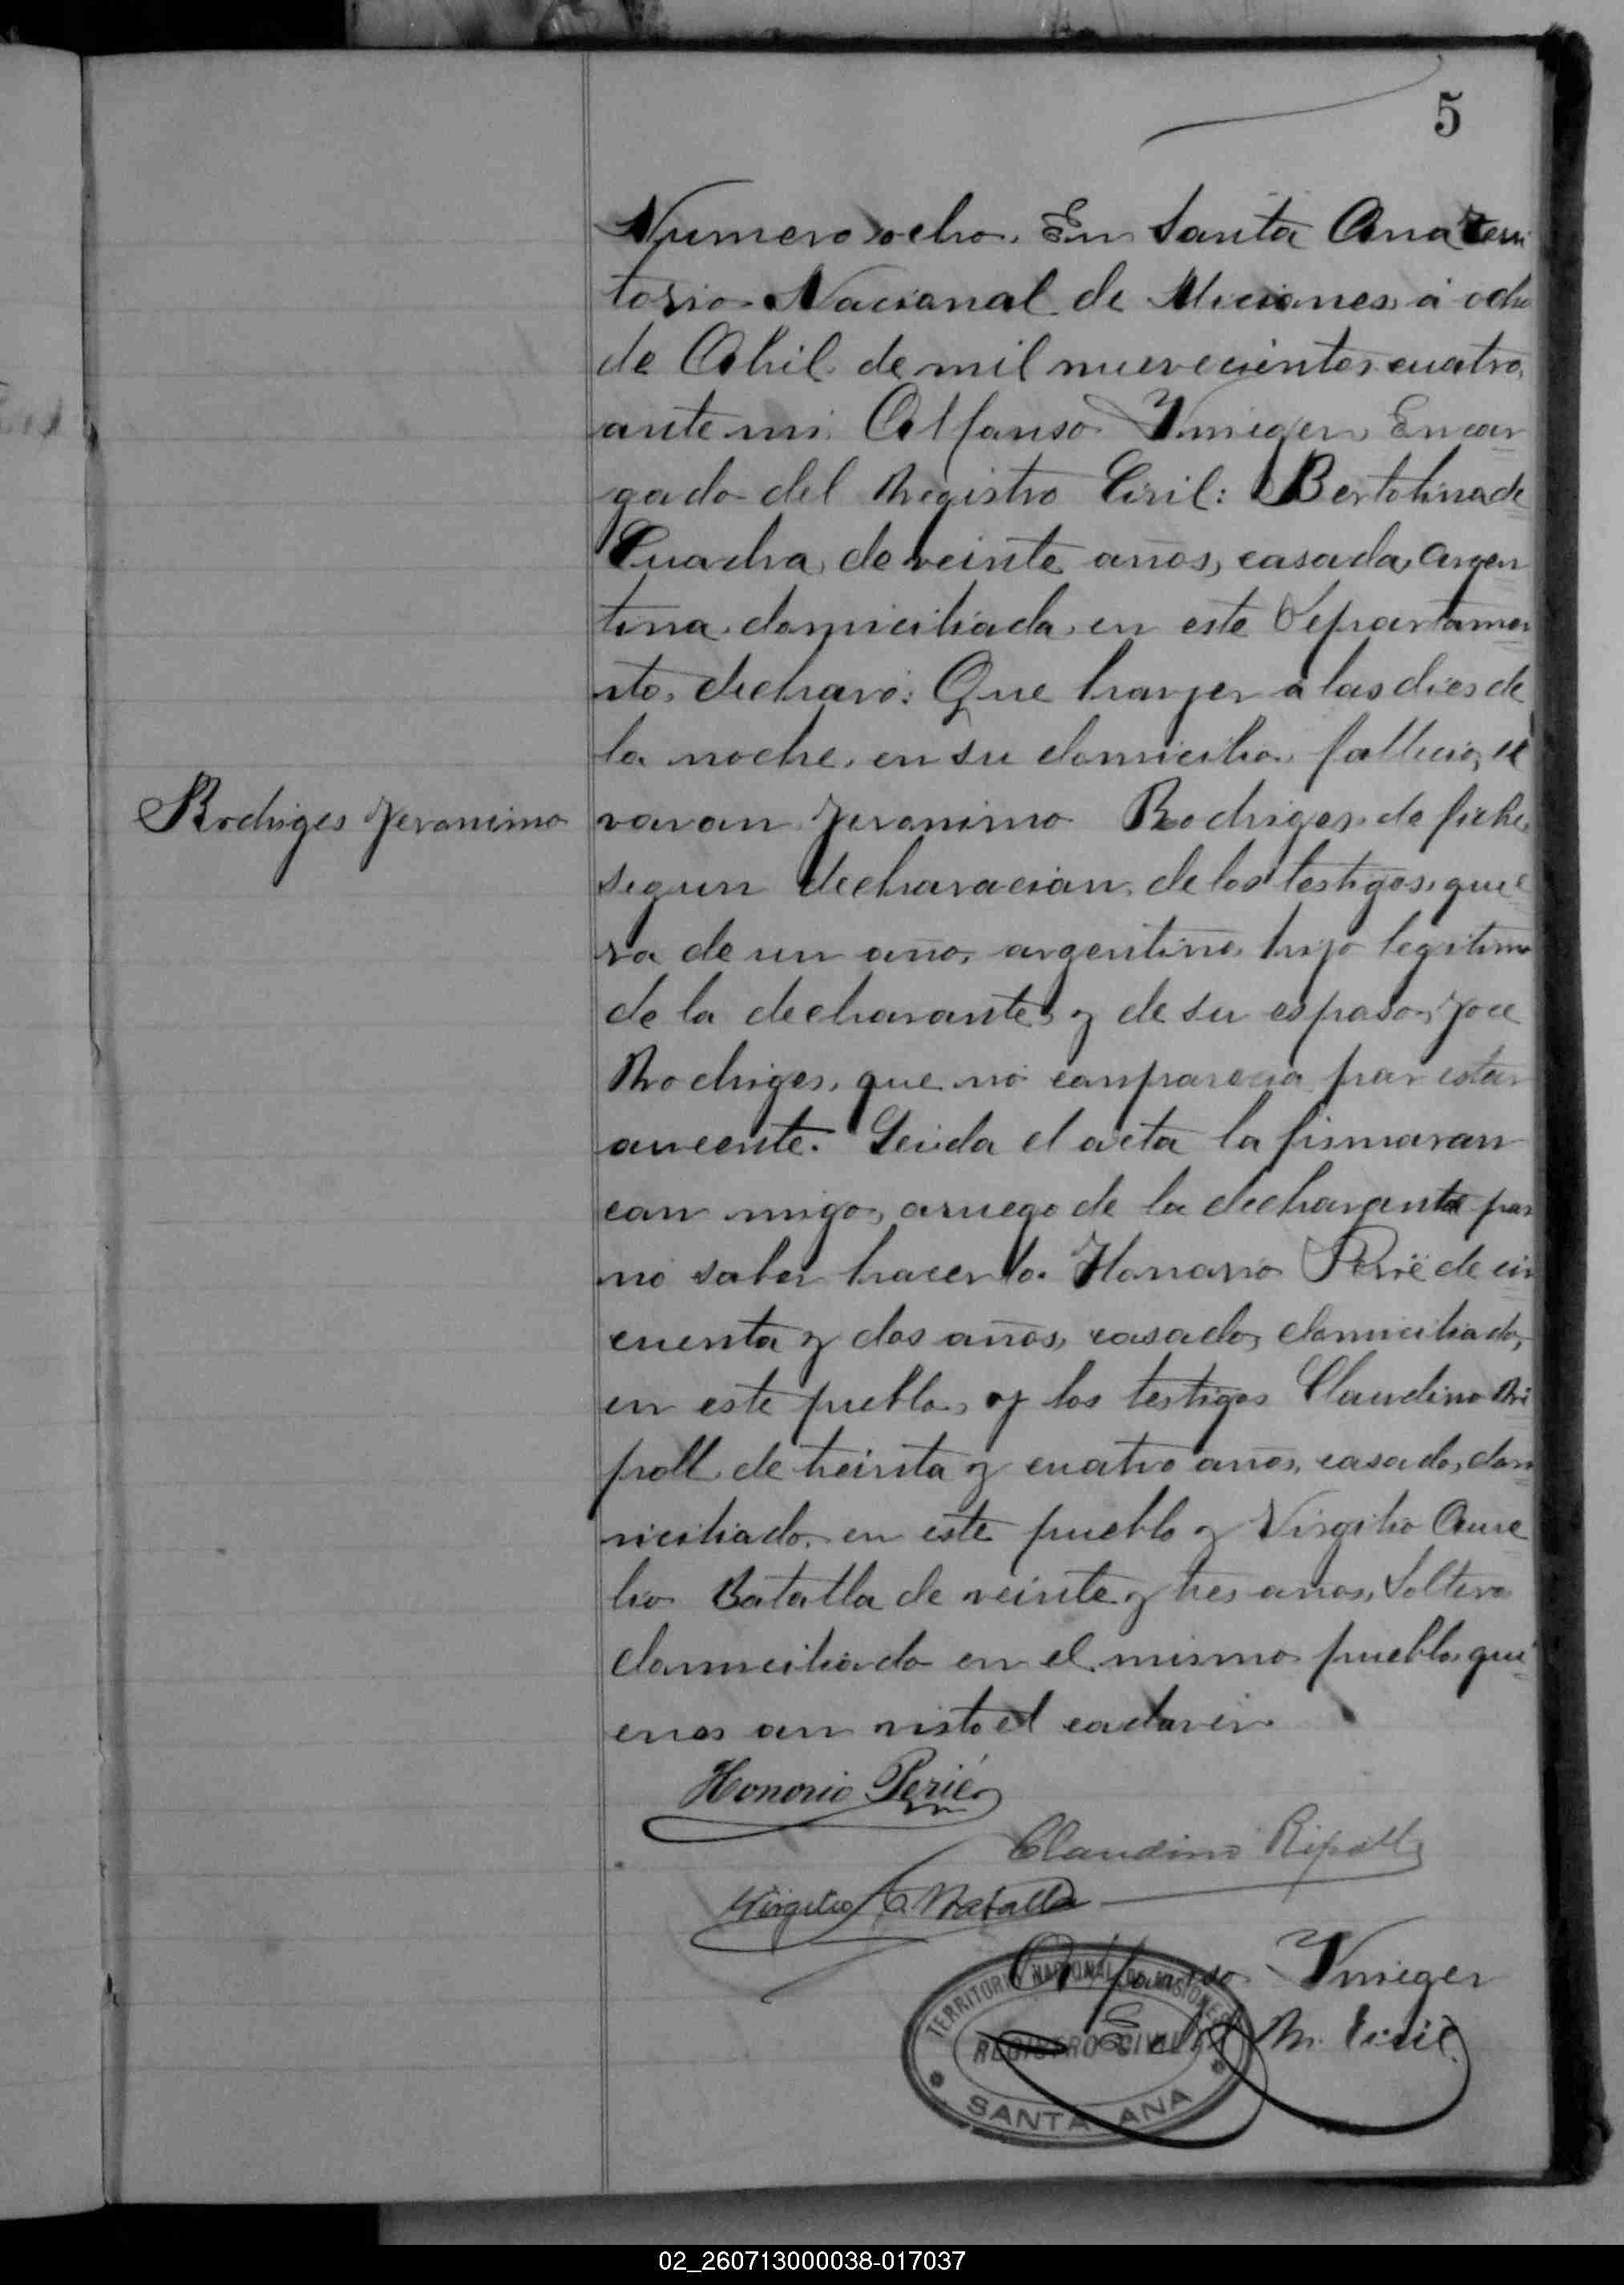 5
Numero ocho. En Santa Ana Terri
torio Nacional de Miciones, á ocho
de Abril de mil nuevecientos cuatro,
ante mi Alfonso Vmieger, Encar
gado del Registro Civil: Bertolina de
Cuadra, de veinte años, casada, argen
tina domiciliada en este Departamen
nto, declraró: Que hayer á las dies de
la noche, en su domicilio, fallecio, el
Rodriges Jeronimo
varon Jeronimo Rodriges, de fiebre
segun declraracion, de los testigos, que e
ra de un año, argentino, hijo legitimo
de la declarante, y de su esposo, Joce
Rodriges, que no conparecia por estar
aucente. Leida el acta la firmaron
con migo, aruego de la declarante por
no saber hacerlo. Honorio Perié de cin
cuenta y dos años, casado, domiciliado,
en este pueblo, y los testigos Claudino Ri
poll, de treinta y cuatro anos, casado, dom
niciliado, en este pueblo y Virgilio Aure
lio Batalla de veinte y tres anos, Soltero
domiciliado en el mismo pueblo, qui
enes an visto el cadaver.
Honorio Perié
Claudino Ripoll
Virgilio A. Batalla
Alfonso Vmieger
E. del R. Civil
TERRITORIO NACIONAL DE MISIONES
REGISTRO CIVIL
SANTA ANA
02_260713000038-017037